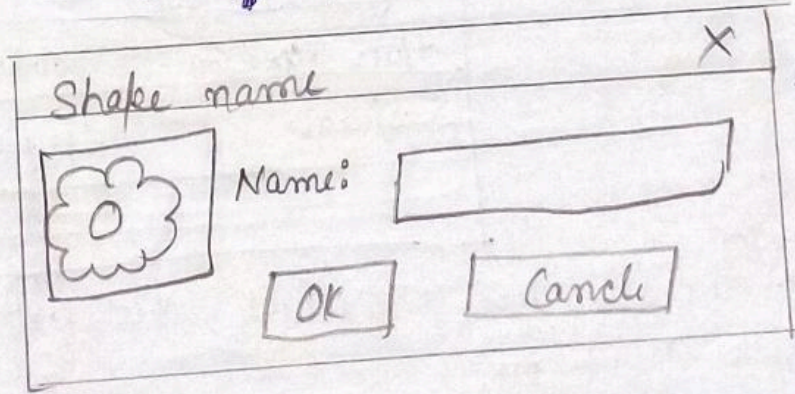 Shape name X
Name:
OK Cancle